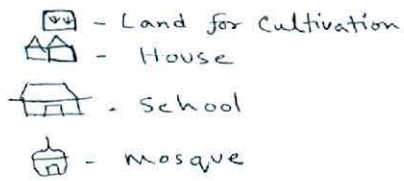 - Land for cultivation
- House
- School
- mosque